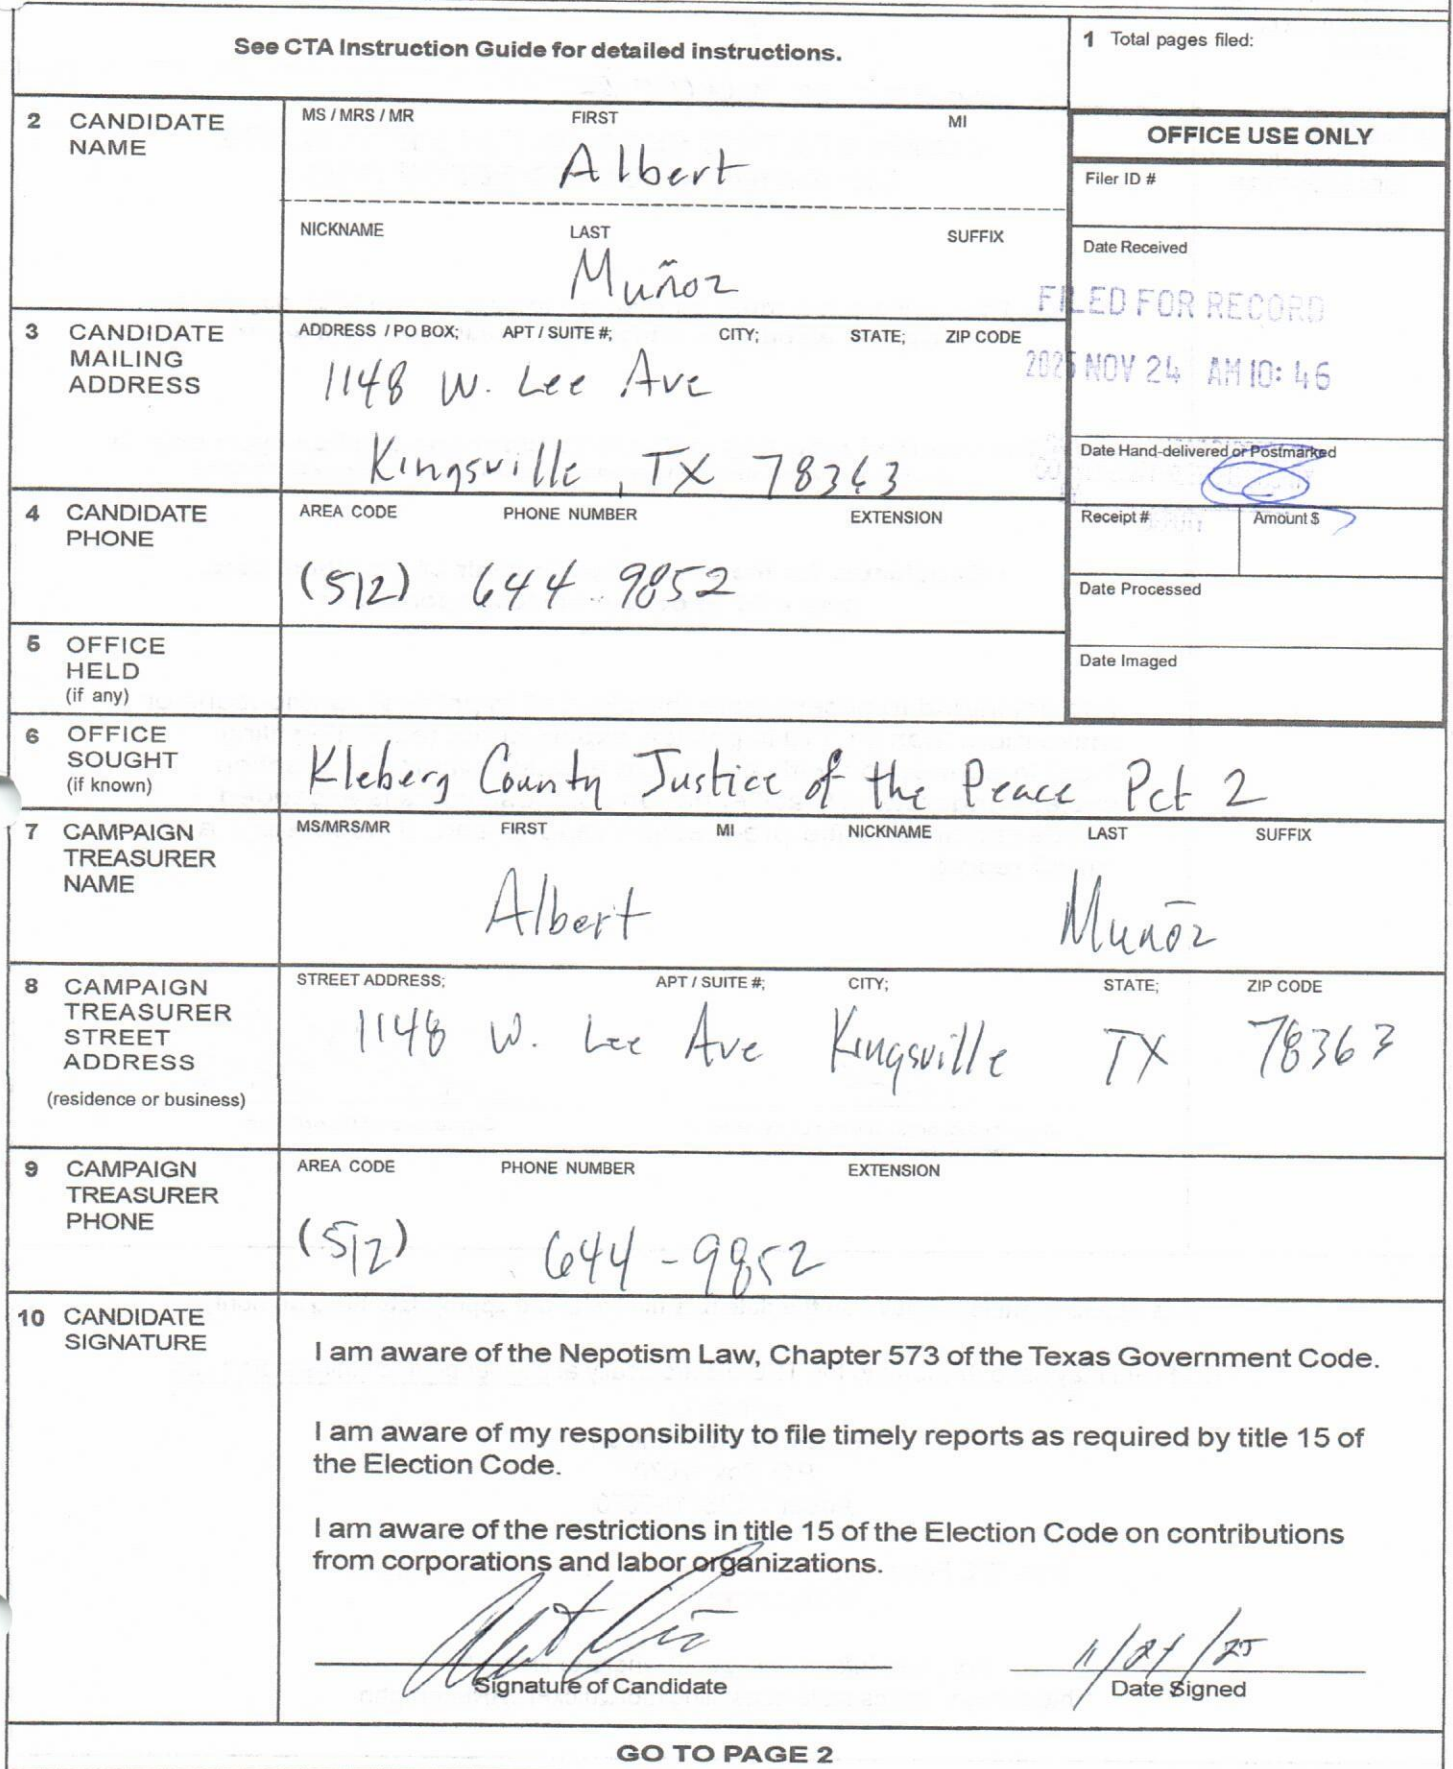 See CTA Instruction Guide for detailed instructions.
1 Total pages filed:
2 CANDIDATE NAME
MS / MRS / MR FIRST MI
Albert
NICKNAME LAST SUFFIX
Muñoz
OFFICE USE ONLY
Filer ID #
Date Received
FILED FOR RECORD
2025 NOV 24 AM 10: 46
Date Hand-delivered or Postmarked
Receipt # Amount $
Date Processed
Date Imaged
3 CANDIDATE MAILING ADDRESS
ADDRESS / PO BOX; APT / SUITE #; CITY; STATE; ZIP CODE
1148 W. Lee Ave
Kingsville, TX 78363
4 CANDIDATE PHONE
AREA CODE PHONE NUMBER EXTENSION
(512) 644-9852
5 OFFICE HELD (if any)
6 OFFICE SOUGHT (if known)
Kleberg County Justice of the Peace Pct 2
7 CAMPAIGN TREASURER NAME
MS/MRS/MR FIRST MI NICKNAME LAST SUFFIX
Albert Muñoz
8 CAMPAIGN TREASURER STREET ADDRESS
(residence or business)
STREET ADDRESS; APT / SUITE #; CITY; STATE; ZIP CODE
1148 W. Lee Ave Kingsville TX 78363
9 CAMPAIGN TREASURER PHONE
AREA CODE PHONE NUMBER EXTENSION
(512) 644-9852
10 CANDIDATE SIGNATURE
I am aware of the Nepotism Law, Chapter 573 of the Texas Government Code.
I am aware of my responsibility to file timely reports as required by title 15 of
the Election Code.
I am aware of the restrictions in title 15 of the Election Code on contributions
from corporations and labor organizations.
11/24/25
Signature of Candidate Date Signed
GO TO PAGE 2